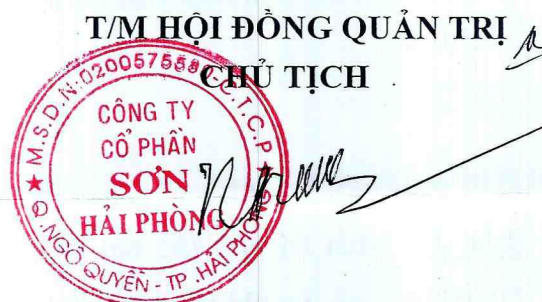 T/M HỘI ĐỒNG QUẢN TRỊ
CHỦ TỊCH
M.S.D.N:0200575580-C.T.C.P
CÔNG TY
CỔ PHẦN
SƠN
HẢI PHÒNG
Q.NGÔ QUYỀN - TP.HẢI PHÒNG